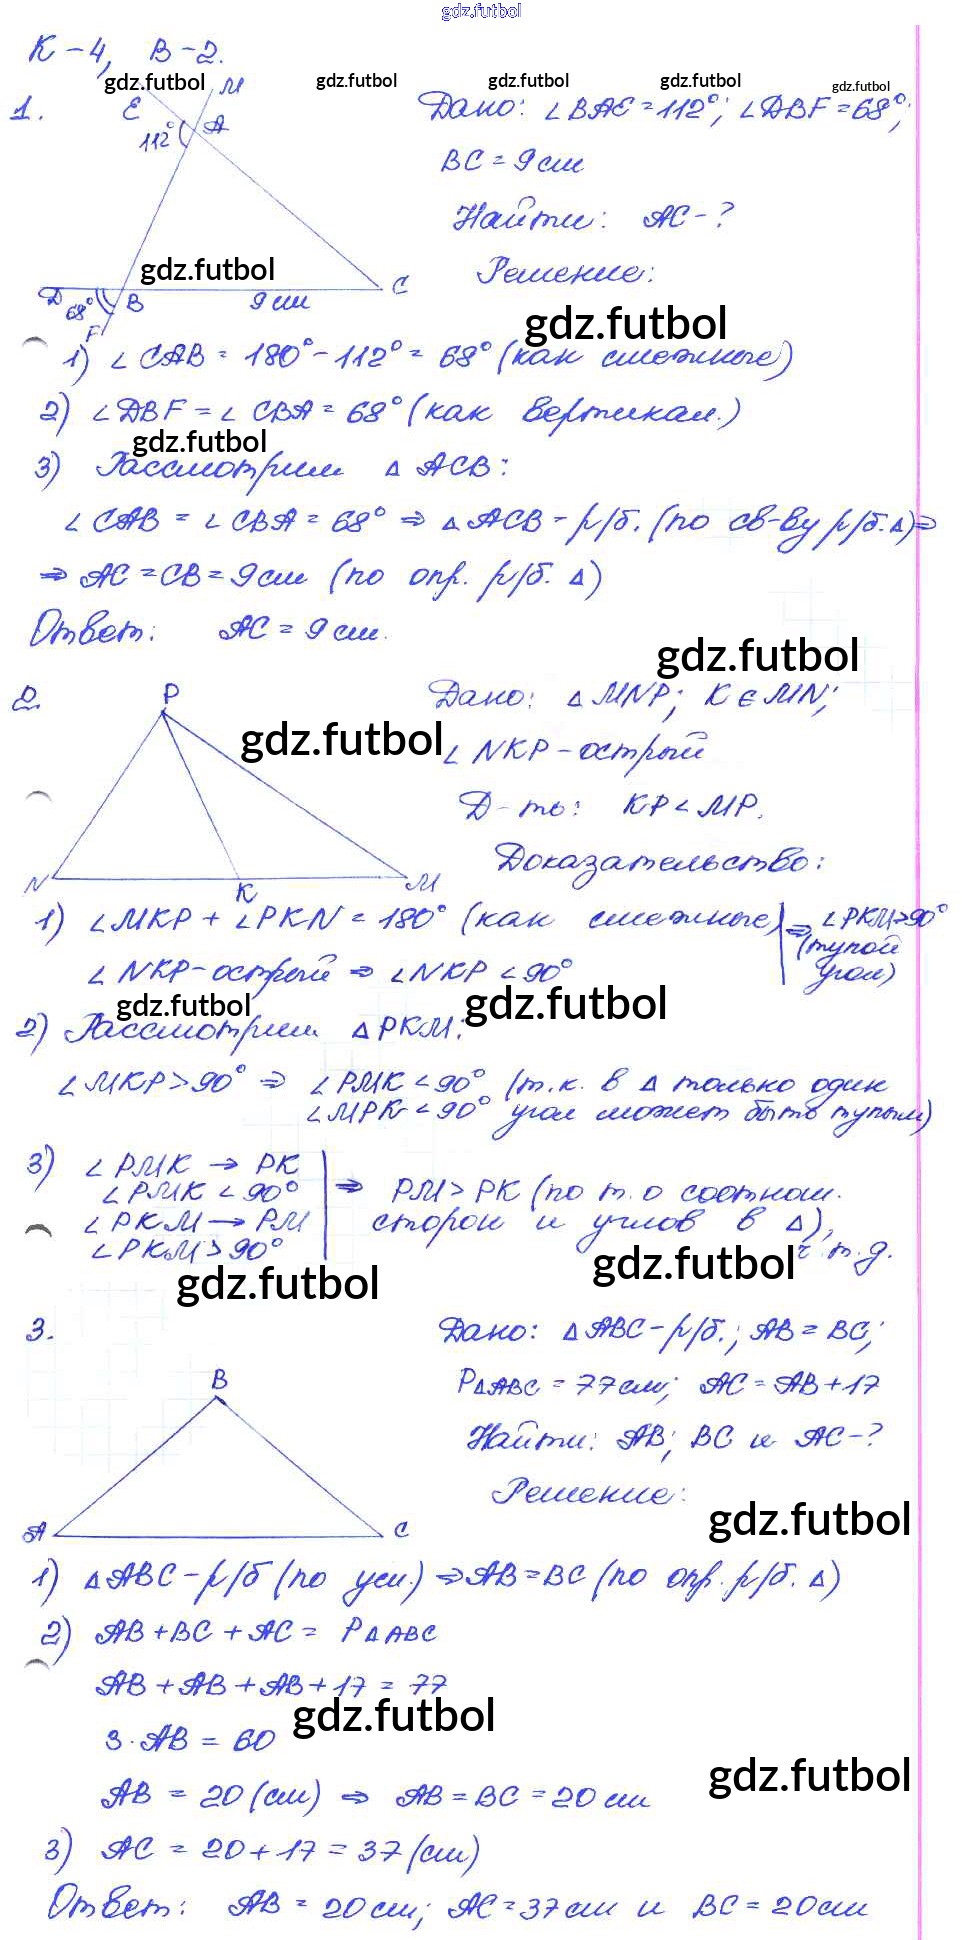 gdz.futbol
К-4, В-2.
gdz.futbol gdz.futbol gdz.futbol gdz.futbol gdz.futbol
1.
E M A 112°
D 68° B F 9 см C
gdz.futbol
Дано: ∠BAE = 112°; ∠DBF = 68°;
BC = 9 см
Найти: AC - ?
Решение:
gdz.futbol
1) ∠CAB = 180° - 112° = 68° (как смежные)
2) ∠DBF = ∠CBA = 68° (как вертикал.)
gdz.futbol
3) Рассмотрим △ACB:
∠CAB = ∠CBA = 68° ⇒ △ACB - р/б. (по св-ву р/б. △) ⇒
⇒ AC = CB = 9 см (по опр. р/б. △)
Ответ: AC = 9 см.
gdz.futbol
2.
P
N K M
gdz.futbol
Дано: △MNP; K ∈ MN;
∠NKP - острый
Д-ть: KP < MP.
Доказательство:
1) ∠MKP + ∠PKN = 180° (как смежные) ⇒ ∠PKM > 90°
(тупой
угол)
∠NKP - острый ⇒ ∠NKP < 90°
gdz.futbol gdz.futbol
2) Рассмотрим △PKM:
∠MKP > 90° ⇒ ∠PMK < 90° (т.к. в △ только один
∠MPK < 90° угол может быть тупым)
3) ∠PMK → PK
∠PMK < 90°
∠PKM → PM
∠PKM > 90°
⇒ PM > PK (по т. о соотнош.
сторон и углов в △),
ч.т.д.
gdz.futbol gdz.futbol
3.
B
A C
Дано: △ABC - р/б.; AB = BC;
P△ABC = 77 см; AC = AB + 17
Найти: AB; BC и AC - ?
Решение:
gdz.futbol
1) △ABC - р/б (по усл.) ⇒ AB = BC (по опр. р/б. △)
2) AB + BC + AC = P△ABC
AB + AB + AB + 17 = 77
gdz.futbol
3·AB = 60
gdz.futbol
AB = 20 (см) ⇒ AB = BC = 20 см
3) AC = 20 + 17 = 37 (см)
Ответ: AB = 20 см; AC = 37 см и BC = 20 см